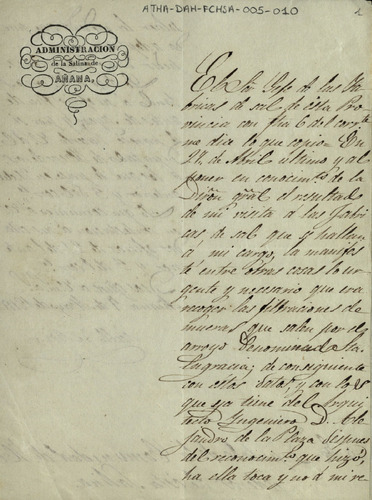 ATHA-DAH-FCHSA-005-010
ADMINISTRACION
de la Salina de
AÑANA.
El Sor Gefe de las Fa
bricas de sal de esta Pro
vincia con fha 6 del corrte
me dice lo que copio. En
de Abril ultimo y al
poner en conocimto de la
Dijon gral el resultado
de mi visita a las fabri
cas, de sal que se hallan
a mi cargo, la manifes
té entre otras cosas lo ur
gente y necesario que era
recoger las filtraciones de
mueras que salen por el
arroyo denominado la
de consiguiente
con estos datos, y con los
que ya tiene del Arqui
tecto Ingeniero D. Ale
jandro de la Plaza despues
del reconocimto que hizo,
ha ella toca y no á mi re